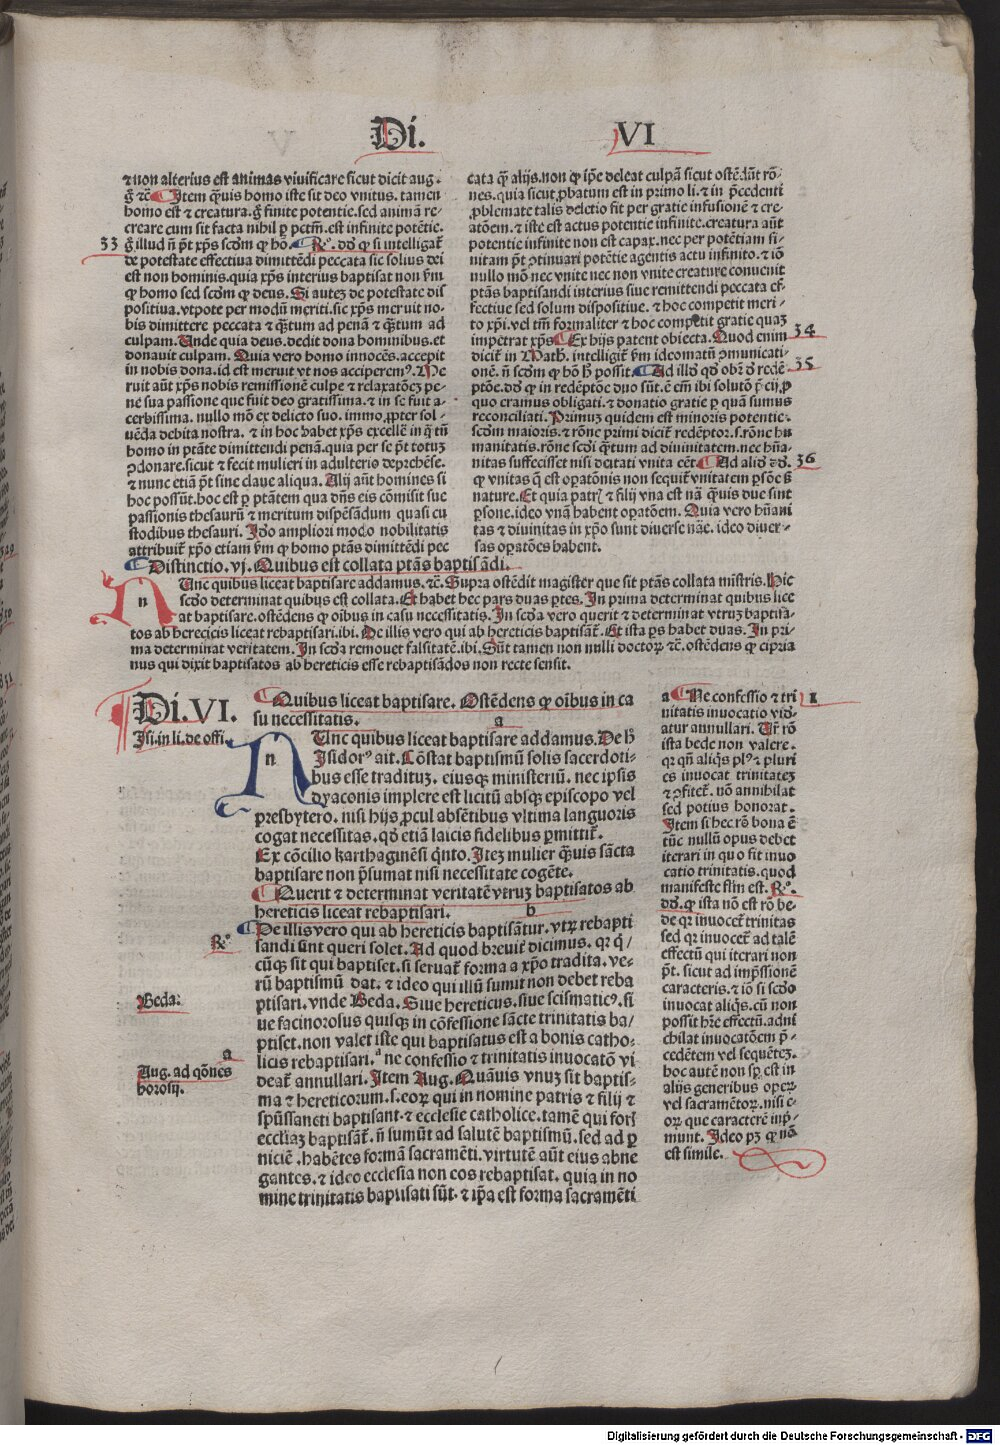 Di. VI
⁊ non alterius est animas viuificare sicut dicit aug.
g̃ ⁊c̃ Item q̃uis homo iste sit deo vnitus. tamen
homo est ⁊ creatura. g̃ finite potentie. sed animã re-
creare cum sit facta nihil ꝑ pctm̃. est infinite potẽtie.
33 g̃ illud ñ p̃t xp̃s scd̓m ꝙ hõ. R̃o. dd̓ ꝙ si intelligat̃
de potestate effectiua dimittẽdi peccata sic solius dei
est non hominis. quia xp̃s interius baptisat non ẜm
ꝙ homo sed scd̓m ꝙ deus. Si autez de potestate dis
positiua. vtpote per modũ meriti. sic xp̃s meruit no-
bis dimittere peccata ⁊ q̃ꝫtum ad penã ⁊ q̃ꝫtum ad
culpam. Unde quia deus. dedit dona hominibus. et
donauit culpam. Quia vero homo innocẽs. accepit
in nobis dona. id est meruit vt nos acciperemꝰ. Me
ruit aũt xp̃s nobis remissionẽ culpe ⁊ relaxatõeꝫ pe-
ne sua passione que fuit deo gratissima. ⁊ in se fuit a-
cerbissima. nullo mõ ex delicto suo. immo ꝓpter sol-
uẽda debita nostra. ⁊ in hoc habet xp̃s excellẽ in q̃ tũ
homo in ptãte dimittendi penã. quia per se p̃t totuꝫ
ↄdonare. sicut ⁊ fecit mulieri in adulterio deprehẽse.
⁊ nunc etiã p̃t sine claue aliqua. Alij aũt homines si
hoc possũt. hoc est ꝑ ptãtem qua dñs eis cõmisit sue
passionis thesaurũ ⁊ meritum dispẽsãdum quasi cu
stodibus thesauri. Id̓o ampliori modo nobilitatis
attribuit̃ xp̃o etiam ẜm ꝙ homo ptãs dimittẽdi pec
cata q̃ alijs. non ꝙ ip̃e deleat culpã sicut ostẽdũt rõ-
nes. quia sicut ꝓbatum est in primo li. ⁊ in p̃cedenti
ꝓblemate talis deletio fit per gratie infusionẽ ⁊ cre-
atõem. ⁊ iste est actus potentie infinite. creatura aũt
potentie infinite non est capax. nec per potẽtiam fi-
nitam p̃t ↄtinuari potẽtie agentis actu infinito. ⁊ iõ
nullo mõ nec vnite nec non vnite creature conuenit
ptãs baptisandi interius siue remittendi peccata ef-
fectiue sed solum dispositiue. ⁊ hoc competit meri-
to xp̃i. vel tm̃ formaliter ⁊ hoc competit gratie quaꝫ
impetrat xp̃s Ex hijs patent obiecta. Quod enim 34
dicit̃ in Math. intelligit̃ ẜm ideomatũ ↄmunicati-
onẽ. ñ scd̓m ꝙ hõ h̓ possit. Ad illd̓ qd̓ obẽ d̓ redẽ- 35
ptõe. dd̓ ꝙ in redẽptõe duo sũt. ẽ em̃ ibi solutõ p̃cij. ꝓ
quo eramus obligati. ⁊ donatio gratie ꝑ quã sumus
reconciliati. Primuꝫ quidem est minoris potentie.
scd̓m maioris. ⁊ rõne primi dicit̃ redẽptor. s. rõne hu
manitatis. rõne scd̓i q̃ꝫtum ad diuinitatem. nec hũa-
nitas suffecisset nisi deitati vnita eẽt. Ad aliд dd̓. 36
ꝙ vnitas q̃ est oꝑatõnis non sequit̃ vnitatem ꝑsõe s̓
nature. Et quia patr̃ ⁊ filij vna est nã q̃uis due sint
ꝑsone. ideo vnã habent oꝑatõem. Quia vero hũani
tas ⁊ diuinitas in xp̃o sunt diuerse nãe. ideo diuer-
sas oꝑatões habent.
Distinctio. vj. Quibus est collata ptãs baptisãdi.
Nunc quibus liceat baptisare addamus. ⁊c̃. Supra ostẽdit magister que sit ptãs collata mĩstris. Hic
scd̓o determinat quibus est collata. Et habet hec pars duas ꝑtes. In prima determinat quibus lice
at baptisare. ostẽdens ꝙ oĩbus in casu necessitatis. In scd̓a vero querit ⁊ determinat vtruꝫ baptisa-
tos ab hereticis liceat rebaptisari. ibi. De illis vero qui ab hereticis baptisãt̃. Et ista ꝑs habet duas. In pri-
ma determinat veritatem. In scd̓a remouet falsitatẽ. ibi. Sũt tamen non nulli doctoꝝ ⁊c̃. ostẽdens ꝙ cipria
nus qui dixit baptisatos ab hereticis esse rebaptisãdos non recte sensit.
Di. VI.
Isi. in li. de offi.
Quibus liceat baptisare. Ostẽdens ꝙ oĩbus in ca
su necessitatis. a
Nunc quibus liceat baptisare addamus. De h̓
Isidorꝰ ait. Cõstat baptismũ solis sacerdoti-
bus esse tradituꝫ. eiusqꝫ ministeriũ. nec ipsis
dyaconis implere est licitũ absqꝫ episcopo vel
presbytero. nisi hijs ꝓcul absẽtibus vltima languoris
cogat necessitas. qd̓ etiã laicis fidelibus ꝑmittit̃.
Ex cõcilio karthaginẽsi q̃nto. Iteꝫ mulier q̃uis sãcta
baptisare non p̃sumat nisi necessitate cogẽte.
Querit ⁊ determinat veritatẽ vtruꝫ baptisatos ab
hereticis liceat rebaptisari. b
R̃o.
De illis vero qui ab hereticis baptisãtur. vtꝝ rebapti
sandi sint queri solet. Ad quod breuit̃ dicimus. qꝛ q̃-
cũqꝫ sit qui baptiset. si seruat̃ forma a xp̃o tradita. ve-
rũ baptismũ dat. ⁊ ideo qui illũ sumit non debet reba
Beda:
ptisari. vnde Beda. Siue hereticus. siue scismaticꝰ. si
ue facinorosus quisqꝫ in cõfessione sãcte trinitatis ba-
ptiset. non valet iste qui baptisatus est a bonis catho-
a
Aug. ad qõnes
horosij.
licis rebaptisari. a ne confessio ⁊ trinitatis inuocatõ vi
deat̃ annullari. Item Aug. Quãuis vnuꝫ sit baptis-
ma ⁊ hereticorum. s. eoꝝ qui in nomine patris ⁊ filij ⁊
sp̃ũssancti baptisant. ⁊ ecclesie catholice. tamẽ qui foris
eccl̃iaꝫ baptisãt̃. ñ sumũt ad salutẽ baptismũ. sed ad ꝑ
niciẽ. habẽtes formã sacramẽti. virtutẽ aũt eius abne
gantes. ⁊ ideo ecclesia non eos rebaptisat. quia in no
mine trinitatis baptisati sũt. ⁊ ip̃a est forma sacramẽti
a Ne confessio ⁊ tri 1
nitatis inuocatio vid̓-
atur annullari. Ut̃ rõ
ista bede non valere.
qꝛ qñ aliq̃s plꝰ ⁊ pluri
es inuocat trinitateꝫ
⁊ ↄfitet̃. nõ annihilat
sed potius honorat.
Item si hec rõ bona ẽ
tũc nullũ opus debet
iterari in quo fit inuo
catio trinitatis. quod
manifeste fl̃m est. R̃o.
dd̓. ꝙ ista nõ est rõ be-
de qꝛ inuocet̃ trinitas
sed qꝛ inuocet̃ ad talẽ
effectũ qui iterari non
p̃t. sicut ad imp̃ssionẽ
caracteris. ⁊ iõ si sc̓do
inuocat aliq̃s. cũ non
possit hr̃e effectũ. adni
chilat inuocatõem p̃-
cedẽtem vel sequẽteꝫ.
hoc autẽ non sꝑ est in
alijs generibus operꝝ
vel sacramẽtoꝝ. nisi e-
oꝝ que caracterẽ inp̃-
munt. Ideo pꝫ ꝙ nõ
est simile.
Digitalisierung gefördert durch die Deutsche Forschungsgemeinschaft - DFG